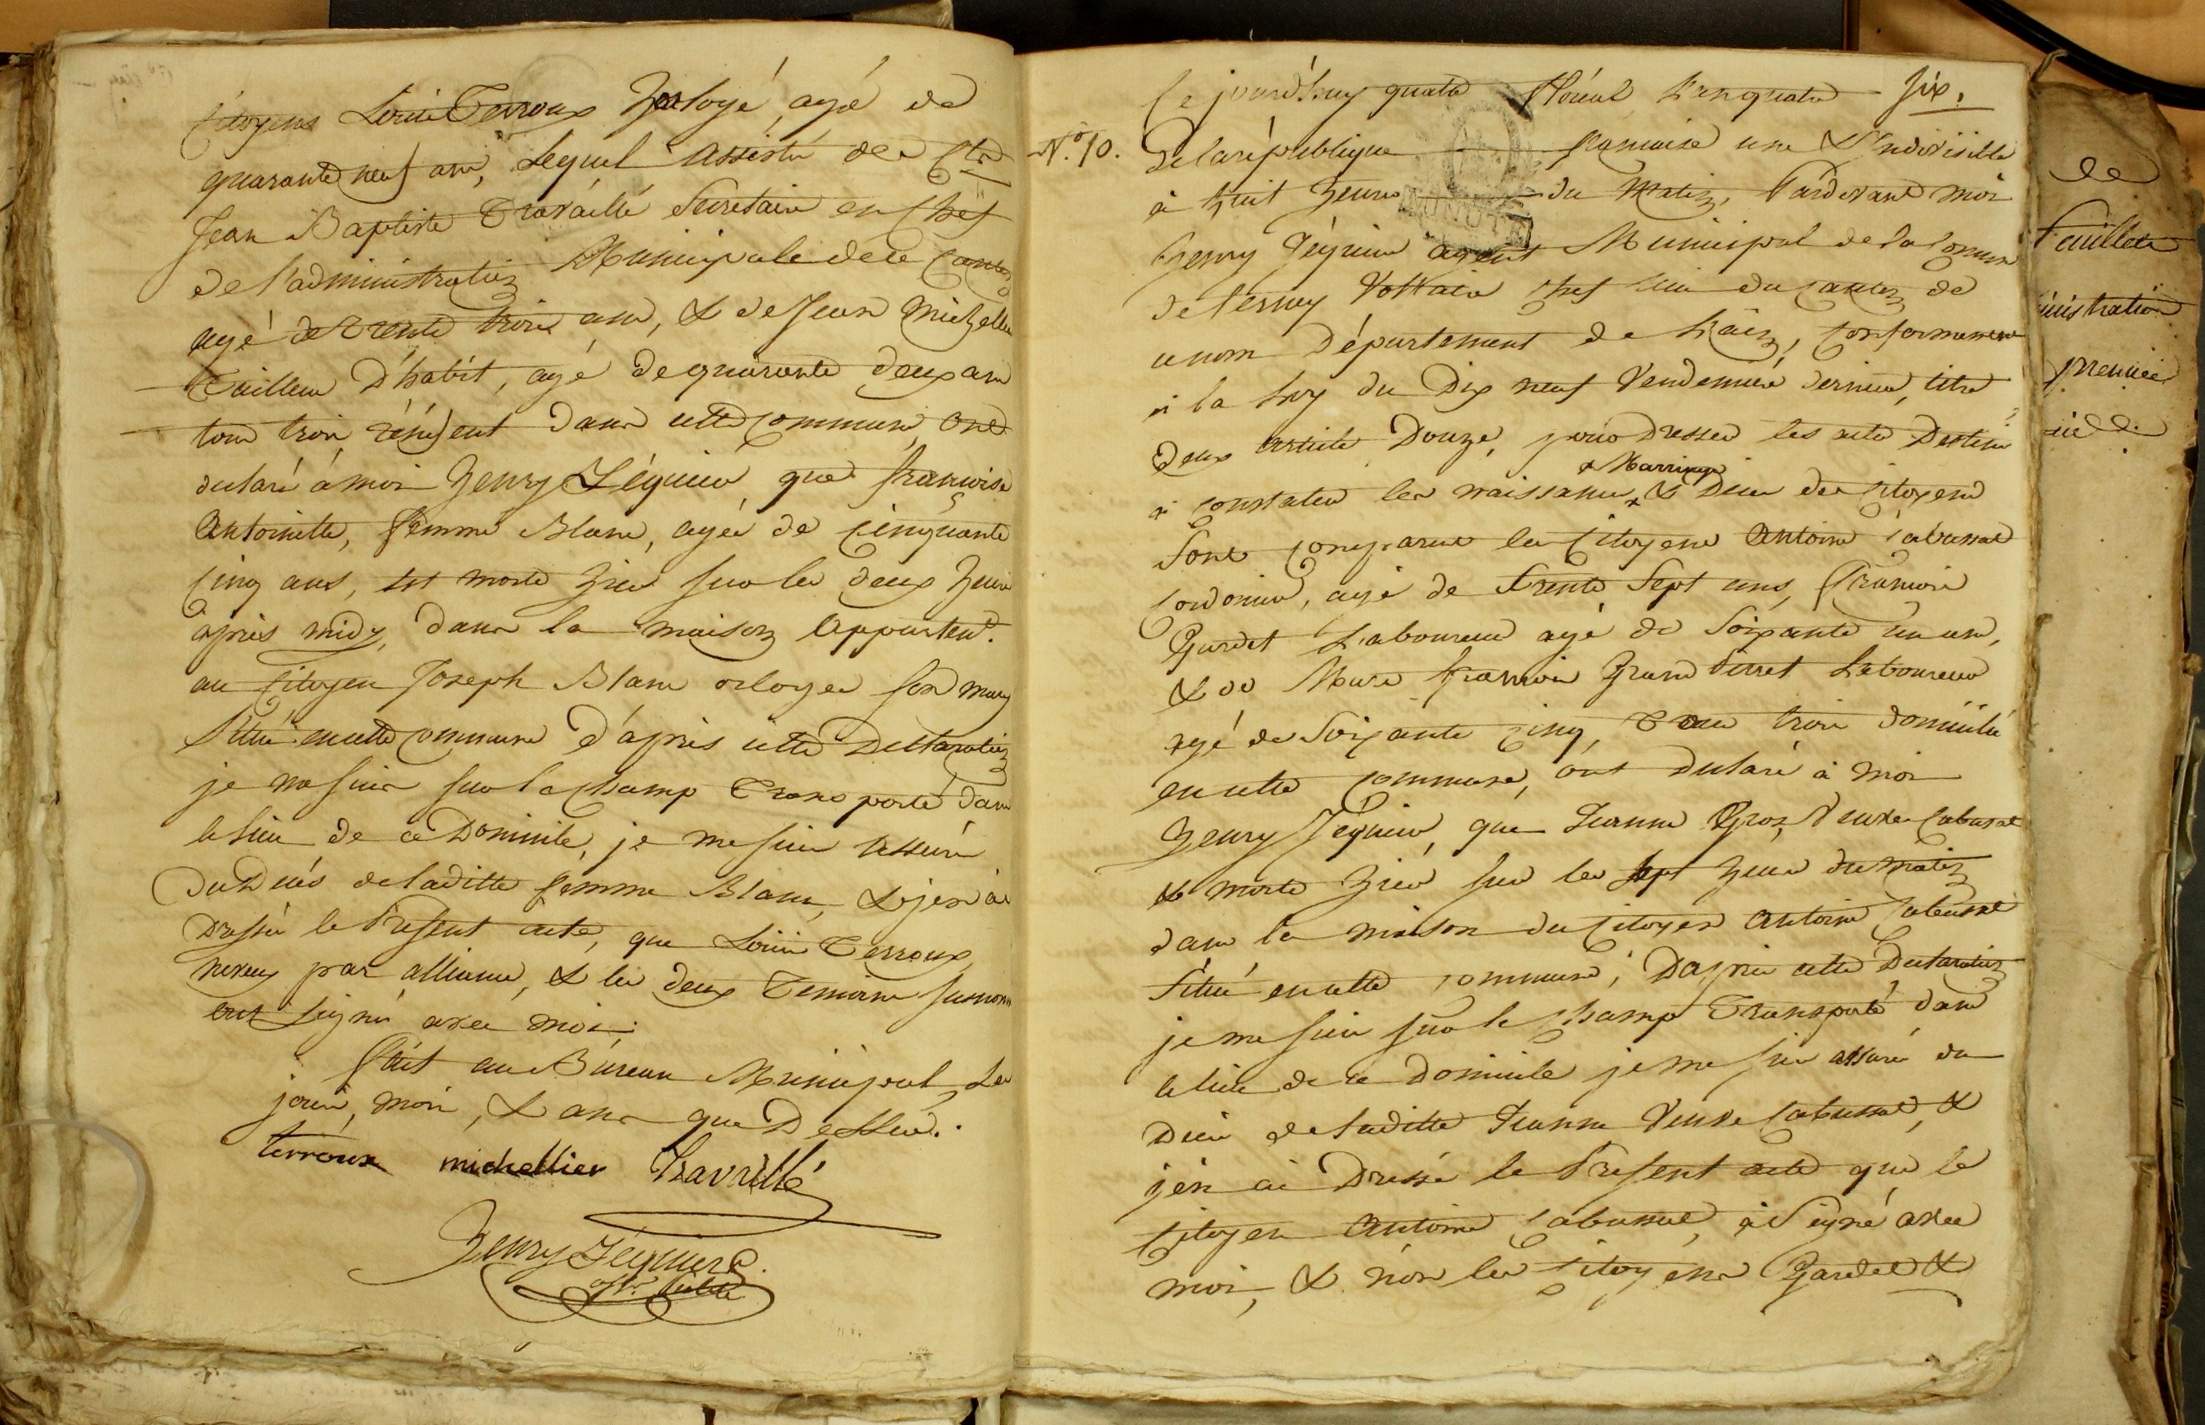 Citoyens Louis Terroux horlogé, agé de
quarante neuf ans, Lequel assisté des Cns
Jean Baptiste Travaillé Secretaire en chef
de l'administration Municipale de ce Canton
agé de trente trois ans, & de Jean Michellier
Tailleur D'habit, agé de quarante deux ans
tous trois résident dans cette commune, ont
declaré à moi Henry Jéquier, que françoise
Antoinette, femme Blanc, agée de cinquante
cinq ans, est morte hier sur les deux heures
après midy, dans la maison appartent.
au Citoyen Joseph Blanc orloger son mary
Situé en cette commune d'après cette Declaration
je me suis sur le champ Transporté dans
le lieu de ce Domicile, je me suis assuré
du Decés de laditte femme Blanc, & j'en ai
Dressé le Present acte, que Louis Terroux
neveux par alliance, & les deux Temoins susnom
ont Signé avec moi;
fait au Bureau Municipal, les
jours, mois, & ans que Dessus.
terroux michellier Travaillé
Henry Jéquier
offr. public
Six.
Ce jourd'huy quatre floréal L'an quatre
N.o 10. De la république française une & Indivisible
à huit heures du Matin, Pardevant moi
Henry Jéquier agent Municipal de la Comune
MINUTE
de ferney Voltaire chef lieu du Canton de
ce nom Département de L'ain, conformement
à la Loy du Dix neuf Vendemiere dernier, titre
Deux article Douze, pour Dresser les acte Destiné
à constater les naissances, & Marriage & Décés des Citoyens
Sont comparus les Citoyens Antoine Cabussat
Cordonier, agé de trente Sept ans, françois
Gardet Laboureur agé de Soixante un an,
& de Marc françois Grand Perret Laboureur
agé de Soixante cinq, tous trois domicilié
en cette commune, ont declaré à moi
Henry Jéquier, que Jeanne Gros, Veuve Cabussat
est morte hier sur les sept heures du matin
dans la maison du Citoyen Antoine Cabussat
Situé en cette commune; D'après cette Declaration
je me suis sur le champ Transporté dans
le lieu de ce Domicile je me suis assuré du
Décés de laditte Jeanne Veuve Cabussat, &
j'en ai Dressé le Present acte que le
Citoyen Antoine Cabussat, à Signé avec
moi, & non les Citoyens Gardet &
de
feuillets
premier